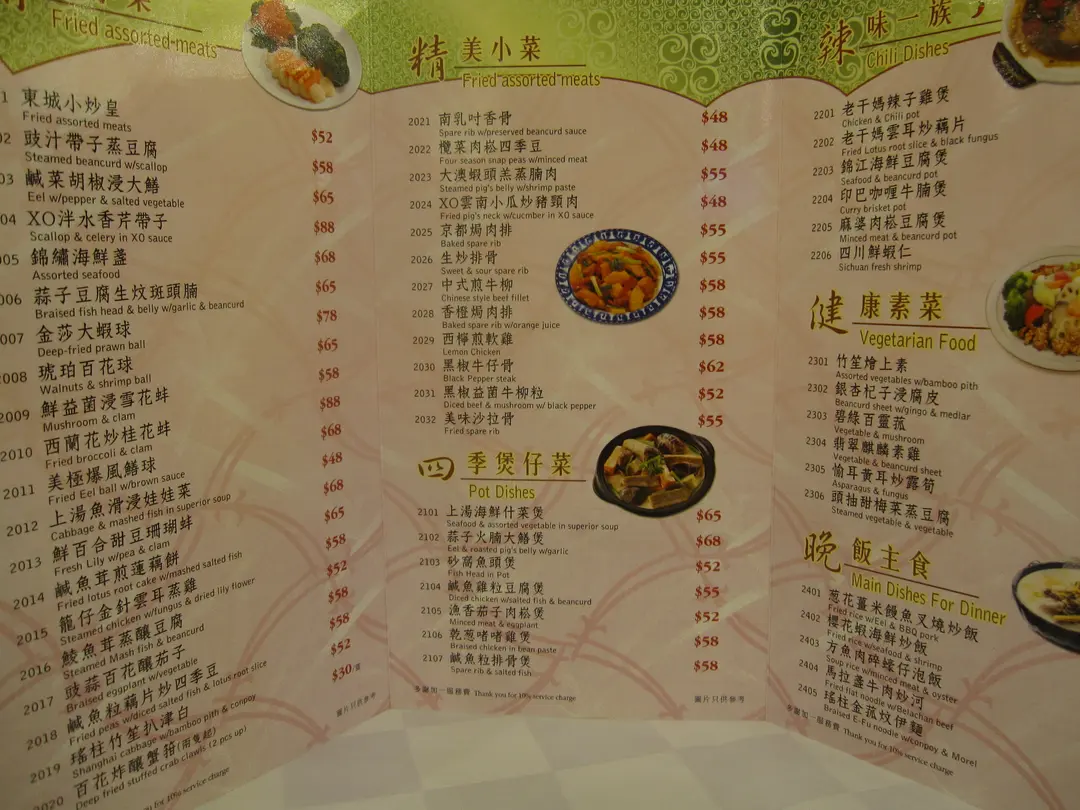 Fried assorted meats
1 東城小炒皇
Fried assorted meats
$52
02 豉汁帶子蒸豆腐
Steamed beancurd w/scallop
$58
03 鹹菜胡椒浸大鱔
Eel w/pepper & salted vegetable
$65
04 XO泮水香芹帶子
Scallop & celery in XO sauce
$88
005 錦繡海鮮盞
Assorted seafood
$68
006 蒜子豆腐生炆斑頭腩
Braised fish head & belly w/garlic & beancurd
$65
007 金莎大蝦球
Deep-fried prawn ball
$78
2008 琥珀百花球
Walnuts & shrimp ball
$65
2009 鮮益菌浸雪花蚌
Mushroom & clam
$58
2010 西蘭花炒桂花蚌
Fried broccoli & clam
$88
2011 美極爆風鱔球
Fried Eel ball w/brown sauce
$68
2012 上湯魚滑浸娃娃菜
Cabbage & mashed fish in superior soup
$48
2013 鮮百合甜豆珊瑚蚌
Fresh Lily w/pea & clam
$68
2014 鹹魚茸煎蓮藕餅
Fried lotus root cake w/mashed salted fish
$65
2015 龍仔金針雲耳蒸雞
Steamed chicken w/fungus & dried lily flower
$58
2016 鯪魚茸蒸釀豆腐
Steamed Mash fish & beancurd
$52
2017 豉蒜百花釀茄子
Braised eggplant w/vegetable
$58
2018 鹹魚粒藕片炒四季豆
Fried peas w/diced salted fish & lotus root slice
$58
2019 瑤柱竹笙扒津白
Shanghai cabbage w/bamboo pith & conpoy
$52
2020 百花炸釀蟹箝(兩隻起)
Deep fried stuffed crab claws (2 pcs up)
$30/隻
圖片只供參考
you for 10% service charge
精美小菜
Fried assorted meats
2021 南乳吋香骨 $48
Spare rib w/preserved beancurd sauce
2022 欖菜肉崧四季豆 $48
Four season snap peas w/minced meat
2023 大澳蝦頭羔蒸腩肉 $55
Steamed pig's belly w/shrimp paste
2024 XO雲南小瓜炒豬頸肉 $48
Fried pig's neck w/cucmber in XO sauce
2025 京都焗肉排 $55
Baked spare rib
2026 生炒排骨 $55
Sweet & sour spare rib
2027 中式煎牛柳 $58
Chinese style beef fillet
2028 香橙焗肉排 $58
Baked spare rib w/orange juice
2029 西檸煎軟雞 $58
Lemon Chicken
2030 黑椒牛仔骨 $62
Black Pepper steak
2031 黑椒益菌牛柳粒 $52
Diced beef & mushroom w/ black pepper
2032 美味沙拉骨 $55
Fried spare rib
四季煲仔菜
Pot Dishes
2101 上湯海鮮什菜煲 $65
Seafood & assorted vegetable in superior soup
2102 蒜子火腩大鱔煲 $68
Eel & roasted pig's belly w/garlic
2103 砂窩魚頭煲 $52
Fish Head in Pot
2104 鹹魚雞粒豆腐煲 $55
Diced chicken w/salted fish & beancurd
2105 漁香茄子肉崧煲 $52
Minced meat & eggplant
2106 乾葱啫啫雞煲 $58
Braised chicken in bean paste
2107 鹹魚粒排骨煲 $58
Spare rib & salted fish
多謝加一服務費 Thank you for 10% service charge
圖片只供參考
辣味一族
Chili Dishes
2201 老干媽辣子雞煲
Chicken & Chili pot
2202 老干媽雲耳炒藕片
Fried Lotus root slice & black fungus
2203 錦江海鮮豆腐煲
Seafood & beancurd pot
2204 印巴咖喱牛腩煲
Curry brisket pot
2205 麻婆肉崧豆腐煲
Minced meat & beancurd pot
2206 四川鮮蝦仁
Sichuan fresh shrimp
健康素菜
Vegetarian Food
2301 竹笙燴上素
Assorted vegetables w/bamboo pith
2302 銀杏杞子浸腐皮
Beancurd sheet w/gingo & medlar
2303 碧綠百靈菰
Vegetable & mushroom
2304 翡翠麒麟素雞
Vegetable & beancurd sheet
2305 愉耳黃耳炒露筍
Asparagus & fungus
2306 頭抽甜梅菜蒸豆腐
Steamed vegetable & vegetable
晚飯主食
Main Dishes For Dinner
2401 葱花薑米饅魚叉燒炒飯
Fried rice w/Eel & BBQ pork
2402 櫻花蝦海鮮炒飯
Fried rice w/seafood & shrimp
2403 方魚肉碎蠔仔泡飯
Soup rice w/minced meat & oyster
2404 馬拉盞牛肉炒河
Fried flat noodle w/Belachan beef
2405 瑤柱金菰炆伊麵
Braised E-Fu noodle w/conpoy & Morel
多謝加一服務費 Thank you for 10% service charge